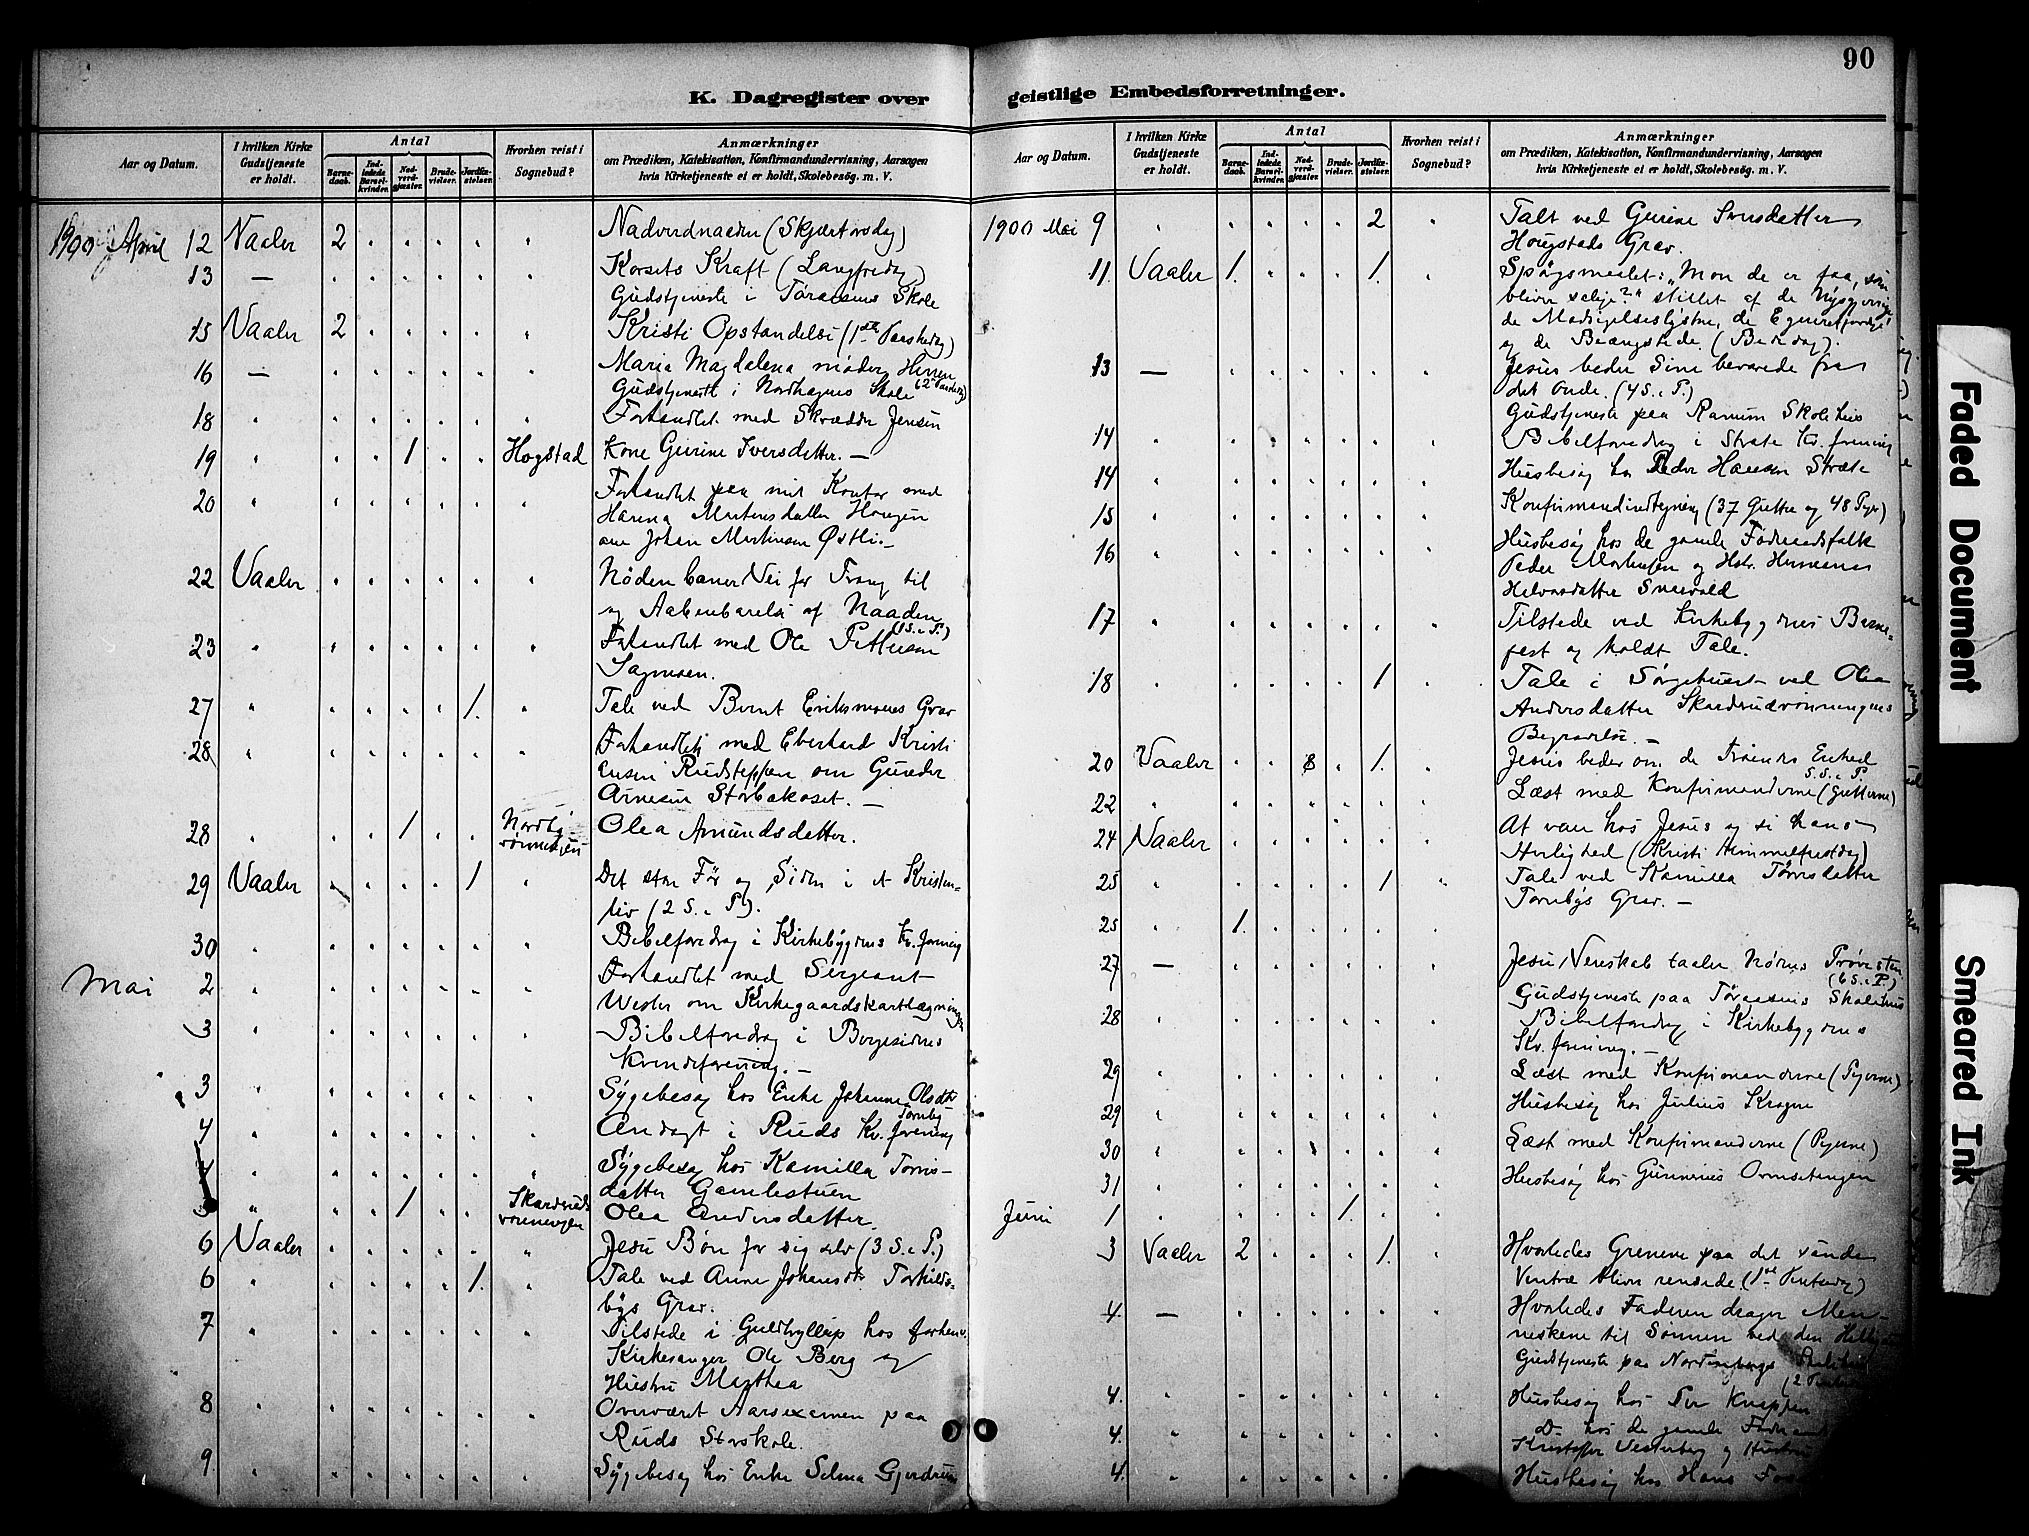 90
K. Dagregister over
geistlige Embedsforretninger.
Aar og Datum.
I hvilken Kirke Gudstjeneste er holdt.
Antal
Barnedaab.
Indledede Barselkvinder.
Nadverdgjæster.
Brudevielser.
Jordfæstelser.
Hvorhen reist i Sognebud?
Anmærkninger
om Prædiken, Katekisation, Konfirmandundervisning, Aarsagen
hvis Kirketjeneste ei er holdt, Skolebesøg. m. V.
1900 April 12 Vaaler 2 Nadverdnaaden (Skjærtorsdag)
13 — Korsets Kraft (Langfredag)
Gudstjeneste i Skole
15 Vaaler 2 Kristi Opstandelse (1ste Paaskedag)
16 — Maria Magdalena møder Herren
Gudstjeneste i Nordhagens Skole (2 Paaskedag)
18 Forhandlet med Skrædder Jensen
19 1 Hogstad Kone Gurine Iversdatter. —
20 Forhandlet paa mit Kontor med
Martinsdatter Haugen
om Johan Martinsen Østli. —
22 Vaaler Nøden baner Vei for Trang til
og Aabenbarelse af Naaden
(1 S. e. P.)
23 Forhandlet med Ole Pettersen
Sagmoen.
27 1. Tale ved Bernt Eriksmoens Grav
28 Forhandlet med Eberhard Kristi
ensen Rudsteppen om Gunder
Arnesen Storbekaset. —
28 1 Nordby- Olea Amundsdatter.
29 Vaaler 1 Det store Før og Siden i et Kristen-
liv (2 S. e. P).
30 Bibelforedrag i Kirkebygdens Kv. forening
Mai 2 Forhandlet med Sergeant
Wester om Kirkegaardskartlægningen
3 Bibelforedrag i
Kvindeforening. —
3 Sygebesøg hos Enke Johanne Olsdtr
Tornby
4 Andagt i Ruds Kv. forening
4 Sygebesøg hos Kamilla Torris-
datter Gamlestuen
5 1 Skardruds Olea Andersdatter.
6 Vaaler Jesu Bøn for sig selv (3 S. e. P.)
6 1. Tale ved Anne Johansdtr Torkilds-
bys Grav.
7 Tilstede i Guldbryllup hos forhenv.
Kirkesanger Ole Berg og
Hustru Marthea
8 Overværet Aarsexamen paa
Ruds Storskole.
9 Sygebesøg hos Enke Selma Gjerdrum
Aar og Datum.
I hvilken Kirke Gudstjeneste er holdt.
Antal
Barnedaab.
Indledede Barselkvinder.
Nadverdgjæster.
Brudevielser.
Jordfæstelser.
Hvorhen reist i Sognebud?
Anmærkninger
om Prædiken, Katekisation, Konfirmandundervisning, Aarsagen
hvis Kirketjeneste ei er holdt, Skolebesøg. m. V.
1900 Mai 9 2 Talt ved Gurine Iversdatter
Hougstads Grav.
11. Vaaler 1. 1. Spørgsmaalet: "Mon de er faa, som
bliver salige?" stillet af de Nysgjerrige,
de Modsigelseslystne, de Egenretfærdige
og de Beængstede. (Bededag).
13 — Jesus beder Sine bevarede fra
det Onde. (4 S. e. P.)
Gudstjeneste paa Ranum Skolehus
14 Bibelforedrag i Stræte Kv. forening
14 Husbesøg hos Peder Hansen Stræte
15 Konfirmandindtegning (37 Gutter og 48 Pger)
16 Husbesøg hos de gamle Føderaadsfolk
Peder og Hstr.
Halvorsdatter Snervold
17 Tilstede ved Kirkebygdens Barne-
fest og holdt Tale.
18 1 Tale i Sørgehuset ved Olea
Andersdatter Skardrudvonningens
Begravelse. —
20 Vaaler 8 1. Jesus beder om de Troendes Enhed
5. S. e. P.
22 Læst med Konfirmanderne (Gutterne)
24 Vaaler At være hos Jesus og se hans
Herlighed (Kristi Himmelfartsdag)
25 1 Tale ved Kamilla Torrisdatter
Tornbys Grav. —
25 1.
27 — Jesu Venskab taaler Nødens Prøvesten
(6 S. e. P.)
Gudstjeneste paa Skolehus
28 Bibelforedrag i Kirkebygdens
Kv. forening. —
29 Læst med Konfirmanderne (Pigerne)
29 Husbesøg hos Julius Krogen
30 Læst med Konfirmanderne (Pigerne)
31 Husbesøg hos Gunerius Ormsetengen
Juni 1 1.
3 Vaaler 2 1. Hvorledes Grenene paa det sande
Vintræ bliver rensede (1ste Pintsedag)
4. — Hvorledes Faderen drager Men-
neskene til Sønnen ved den
Gudstjeneste paa
4. Husbesøg hos Per Knappen
4. Do hos de gamle
Kristoffer Vesterberg og Hustru
4. Husbesøg hos Hans
Faded Document
Smeared Ink